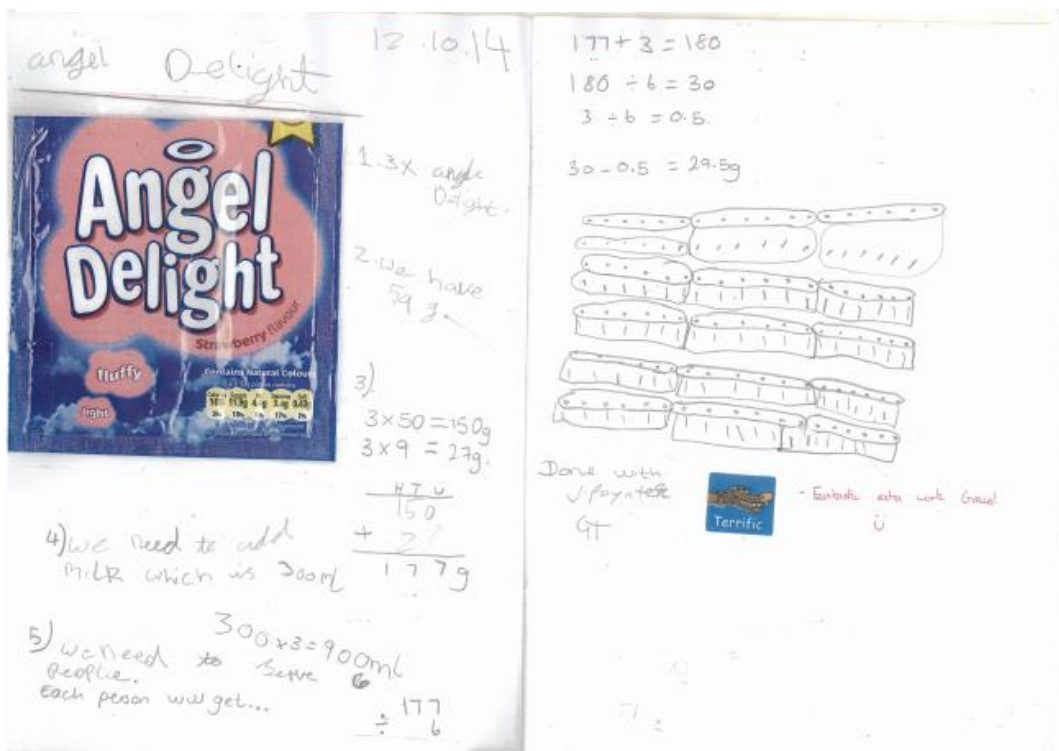 angel Delight
12.10.14
Angel
Delight
Strawberry flavour
fluffy
light
Contains Natural Colours
1. 3x angle
Delght.
2. we have
59 g.
3).
3 x 50 = 150g
3 x 9 = 27g.
H T U
150
+ 27
177g
4) we need to add
milk which is 300ml
300 x 3 = 900ml
5) we need to serve 6
people.
Each person will get...
177
÷ 6
177 + 3 = 180
180 ÷ 6 = 30
3 ÷ 6 = 0.5.
30 - 0.5 = 29.5g
Done with
GT
Terrific
- Fantastic extra work Grace!